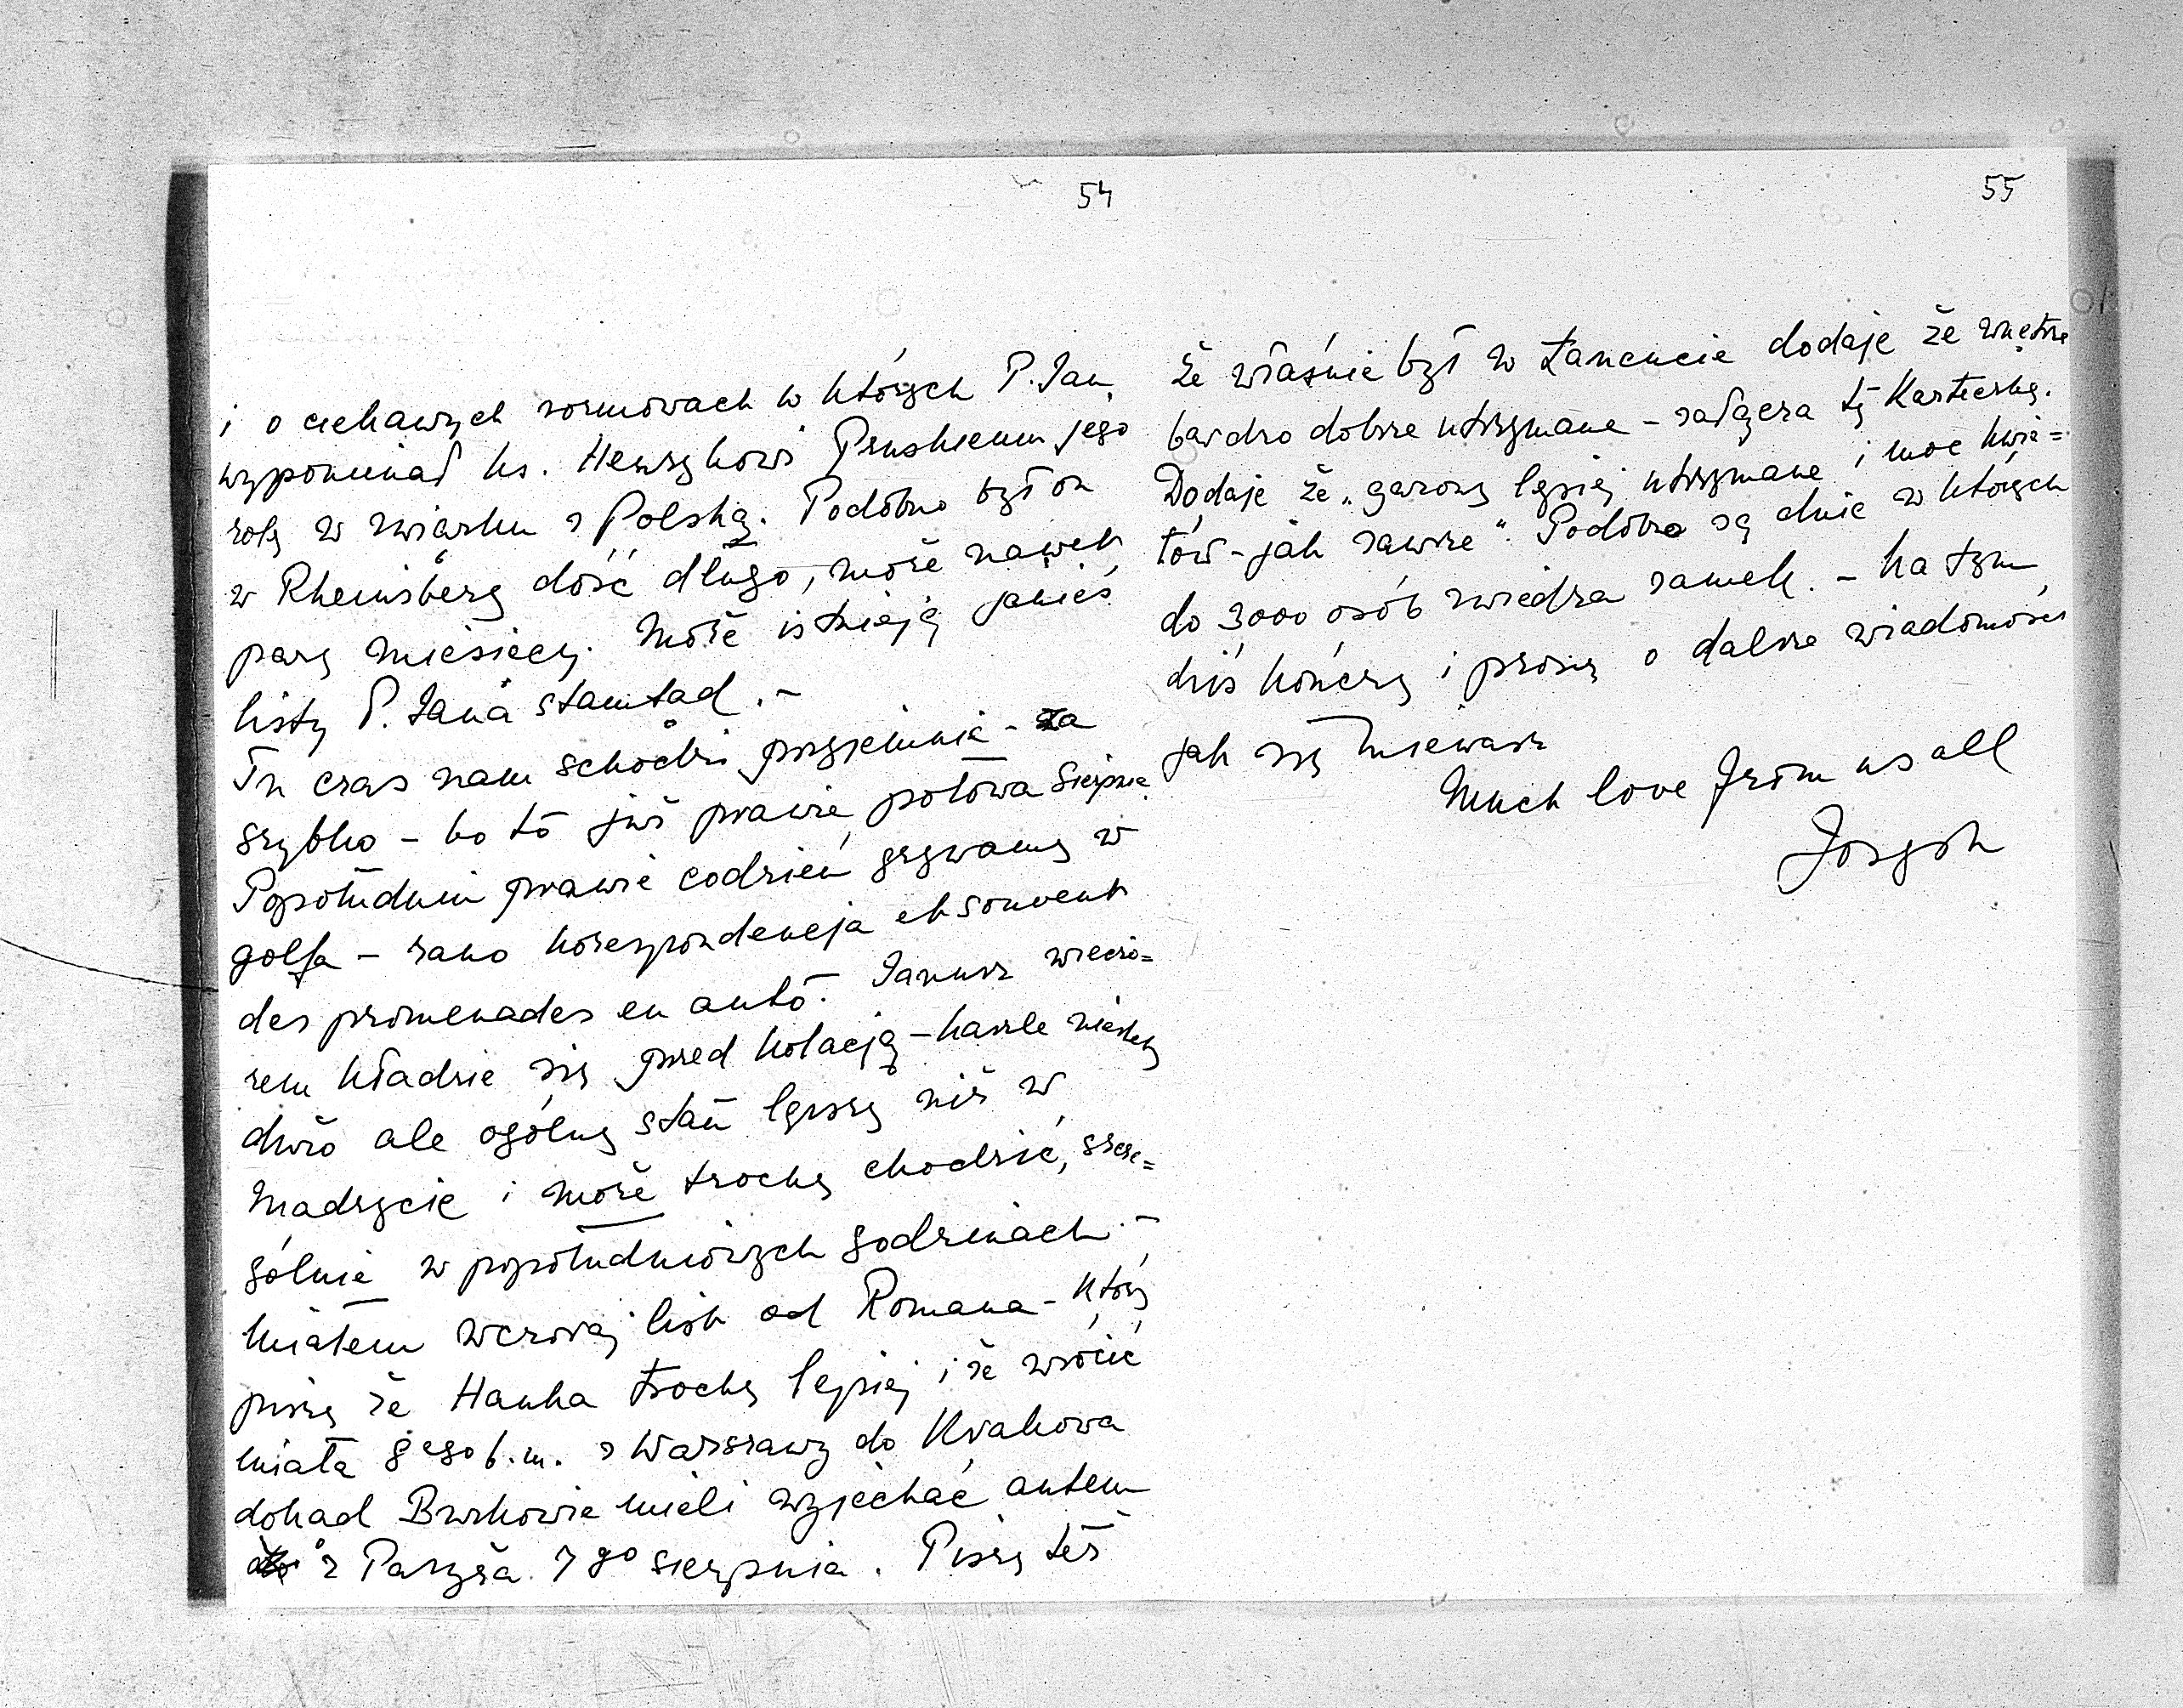 54
i o ciekawych rozmowach w których P. Jan
wypominał ks. Henrykowi Pruskiemu jego
rolę w związku z Polską. Podobno był on
w Rheinsberg dość długo, może nawet
parę miesięcy. Może istnieją jakieś
listy P. Jana stamtąd. -
Tu czas nam schodzi przyjemnie - za
szybko - bo to już prawie połowa Sierpnia.
Popołudniu prawie codzień grywamy w
golfa - rano korespondencja et souvent
des promenades en auto. Janusz wieczo=
rem kładzie się przed kolacją - kaszle niestety
dużo ale ogólny stan lepszy niż w
Madrycie i może trochę chodzić, szcze=
gólnie w popołudniowych godzinach -
Miałem wczoraj list od Romana - który
piszę że Hanka trochę lepiej i że wrócić
miała 8ego b.m. z Warszawy do Krakowa
dokąd Burkowie mieli wyjechać autem
z Paryża 7go sierpnia. Piszę też
55
że właśnie był w Łancucie dodaje że wnętrze
bardzo dobrze utrzymane - załącza tę Karteczkę.
Dodaje że „gazony lepiej utrzymane i moc kwia=
tów - jak zawsze". Podobno są dnie w których
do 3000 osób zwiedza zamek. - Na tym
dziś kończę i proszę o dalsze wiadomości
jak się miewasz
Much love from us all
Joseph